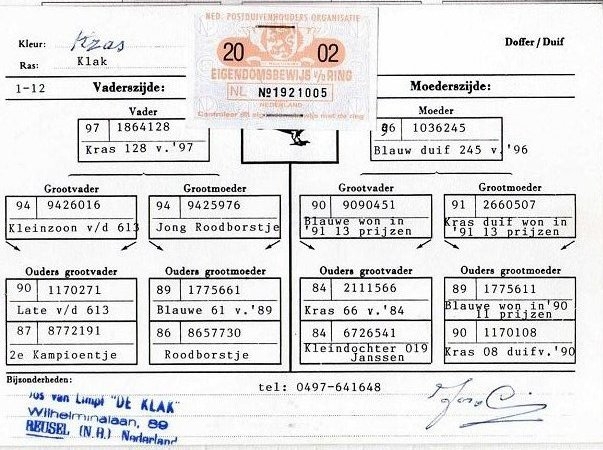 NED. POSTDUIVENHOUDERS ORGANISATIE
20 02
EIGENDOMSBEWIJS v/d RING
NL № 1921005
NEDERLAND
Controleer dit eigendomsbewijs met de ring
Kleur: Kras
Doffer / Duif
Ras: Klak
1-12 Vaderszijde: Moederszijde:
Vader
97 1864128
Kras 128 v.'97
Moeder
96 1036245
Blauw duif 245 v.'96
Grootvader
94 9426016
Kleinzoon v/d 613
Grootmoeder
94 9425976
Jong Roodborstje
Grootvader
90 9090451
Blauwe won in
'91 13 prijzen
Grootmoeder
91 2660507
Kras duif won in
'91 13 prijzen
Ouders grootvader
90 1170271
Late v/d 613
87 8772191
2e Kampioentje
Ouders grootmoeder
89 1775661
Blauwe 61 v.'89
86 8657730
Roodborstje
Ouders grootvader
84 2111566
Kras 66 v.'84
84 6726541
Kleindochter 019
Janssen
Ouders grootmoeder
89 1775611
Blauwe won in'90
11 prijzen
90 1170108
Kras 08 duifv.'90
Bijzonderheden:
tel: 0497-641648
Jos van Limpt "DE KLAK"
Wilhelminalaan, 89
REUSEL (N.B.) Nederland